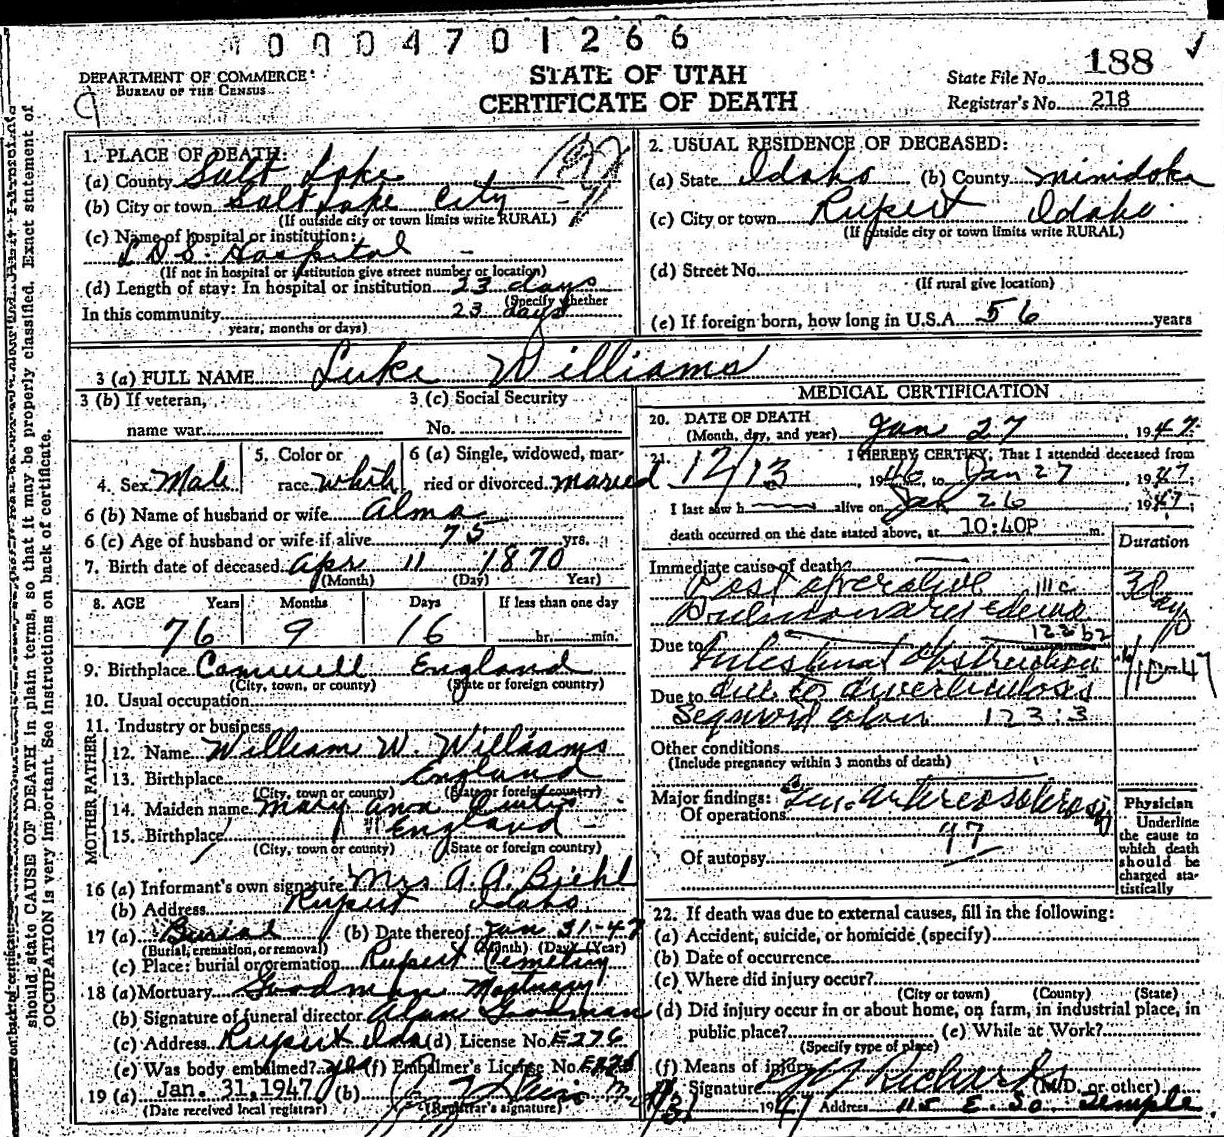 0 0 0 4 7 0 1 2 6 6
DEPARTMENT OF COMMERCE
BUREAU OF THE CENSUS
STATE OF UTAH
CERTIFICATE OF DEATH
State File No. 188
Registrar's No. 218
should state CAUSE OF DEATH in plain terms, so that it may be properly classified. Exact statement of
OCCUPATION is very important. See instructions on back of certificate.
1. PLACE OF DEATH:
(a) County Salt Lake
(b) City or town Salt Lake City
(If outside city or town limits write RURAL)
(c) Name of hospital or institution:
L D S. Hospital
(If not in hospital or institution give street number or location)
(d) Length of stay: In hospital or institution 23 days
(Specify whether
In this community 23 days
years, months or days)
2. USUAL RESIDENCE OF DECEASED:
(a) State Idaho (b) County Minidoka
(c) City or town Rupert Idaho
(If outside city or town limits write RURAL)
(d) Street No.
(If rural give location)
(e) If foreign born, how long in U.S.A. 56 years
3 (a) FULL NAME Luke Williams
3 (b) If veteran,
name war
3 (c) Social Security
No.
4. Sex Male
5. Color or
race White
6 (a) Single, widowed, mar-
ried or divorced. maried
6 (b) Name of husband or wife Alma
6 (c) Age of husband or wife if alive 75 yrs.
7. Birth date of deceased Apr 11 1870
(Month) (Day) Year)
8. AGE Years Months Days If less than one day
76 9 16 hr. min.
9. Birthplace England
(City, town, or county) (State or foreign country)
10. Usual occupation
11. Industry or business
FATHER
12. Name William W. Williams
13. Birthplace England
(City, town or county) (State or foreign country)
MOTHER
14. Maiden name Mary Ann Curtis
15. Birthplace England
(City, town or county) (State or foreign country)
16 (a) Informant's own signature Mrs A. A. Biehl
(b) Address Rupert Idaho
17 (a) Burial (b) Date thereof Jan 31-47
(Burial, cremation, or removal) (Month) (Day) (Year)
(c) Place: burial or cremation Rupert Cemetery
18 (a) Mortuary Goodman Mortuary
(b) Signature of funeral director Alan Goodman
(c) Address Rupert Ida (d) License No. E276
(e) Was body embalmed? yes (f) Embalmer's License No. E276
19 (a) Jan. 31, 1947 (b)
(Date received local registrar) (Registrar's signature)
MEDICAL CERTIFICATION
20. DATE OF DEATH
(Month, day, and year) Jan 27 1947
21. I HEREBY CERTIFY, That I attended deceased from
12/13, 1946, to Jan 27, 1947
I last saw h alive on Jan 26 1947;
death occurred on the date stated above, at 10:40P m.
Duration
Immediate cause of death
Post operative 111c
Pulmonary edema
3 Days
122 b2
Due to Intestinal obstruction
1/10-47
Due to due to diverticulosis
123:3
Other conditions
(Include pregnancy within 3 months of death)
Major findings: Gen. arteriosclerosis
Of operations
97
Of autopsy
Physician
Underline
the cause to
which death
should be
charged sta-
tistically
22. If death was due to external causes, fill in the following:
(a) Accident, suicide, or homicide (specify)
(b) Date of occurrence
(c) Where did injury occur?
(City or town) (County) (State)
(d) Did injury occur in or about home, on farm, in industrial place, in
public place? (e) While at Work?
(Specify type of place)
(f) Means of injury
Signature Richards (M.D. or other)
1947 Address 115 E. So. Temple